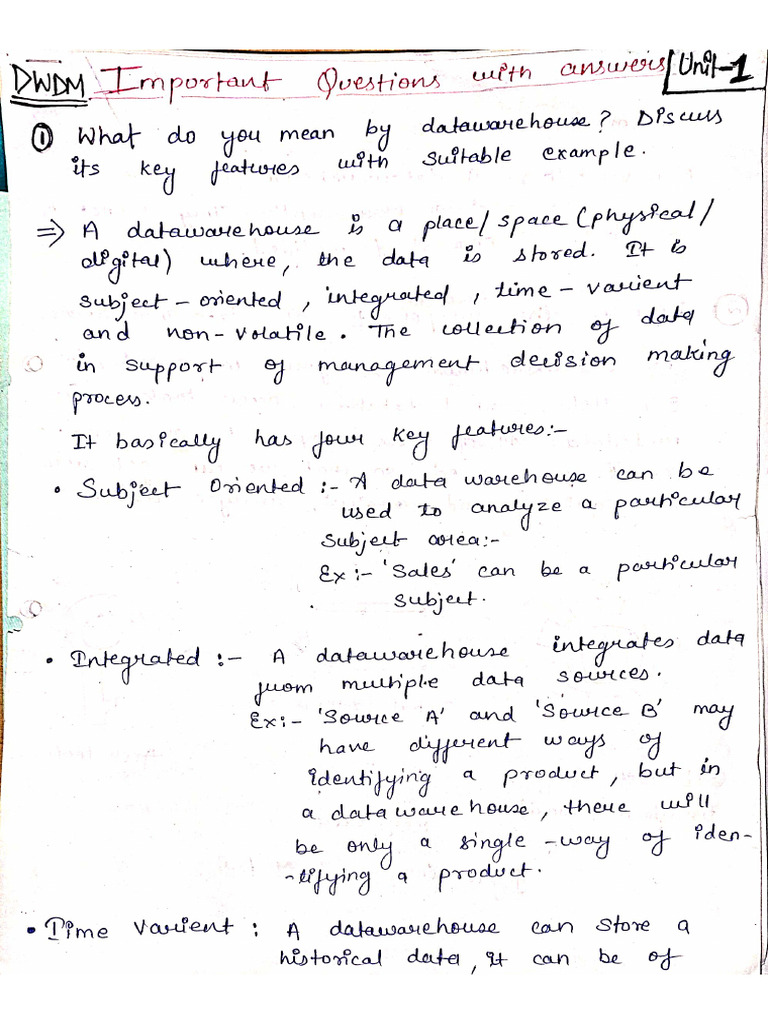 DWDM Important Questions with answers Unit-1
① What do you mean by datawarehouse? Discuss
its key features with suitable example.
⇒ A datawarehouse is a place/space (physical/
digital) where, the data is stored. It is
subject-oriented, integrated, time-varient
and non-volatile. The collection of data
in support of management decision making
process.
It basically has four key features:-
• Subject Oriented :- A data warehouse can be
used to analyze a particular
subject area:-
Ex :- 'Sales' can be a particular
subject.
• Integrated :- A datawarehouse integrates data
from multiple data sources.
Ex:- 'Source A' and 'Source B' may
have different ways of
identifying a product, but in
a dataware house, there will
be only a single -way of iden-
-tifying a product.
• Time Varient : A datawarehouse can store a
historical data, it can be of